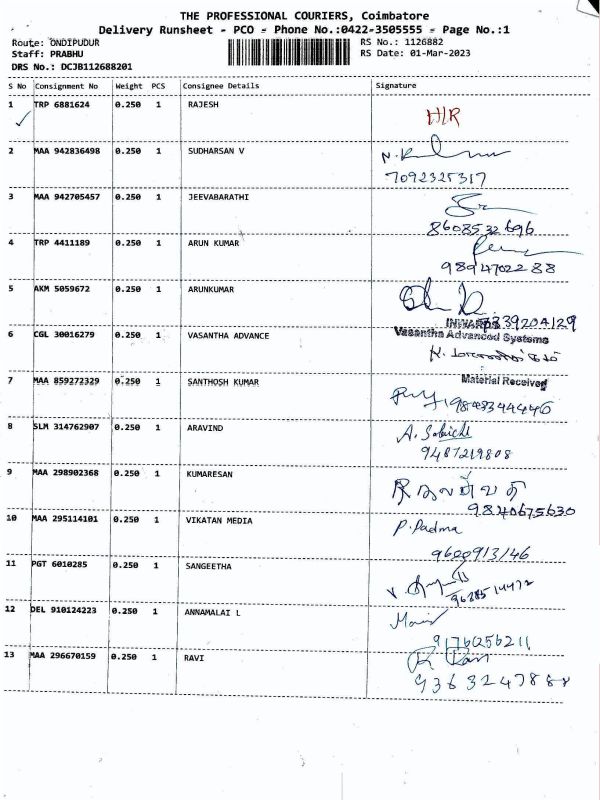 THE PROFESSIONAL COURIERS, Coimbatore
Delivery Runsheet - PCO = Phone No.:0422-3505555 = Page No.:1
Route: ONDIPUDUR RS No.: 1126882
Staff: PRABHU RS Date: 01-Mar-2023
DRS No.: DCJB112688201
S No Consignment No Weight PCS Consignee Details Signature
1 TRP 6881624 0.250 1 RAJESH
H/R
2 MAA 942836498 0.250 1 SUDHARSAN V
7092325317
3 MAA 942705457 0.250 1 JEEVABARATHI
8608532696
4 TRP 4411189 0.250 1 ARUN KUMAR
9894702288
5 AKM 5059672 0.250 1 ARUNKUMAR
7339204129
6 CGL 30016279 0.250 1 VASANTHA ADVANCE
Vasantha Advanced Systems
7 MAA 859272329 0.250 1 SANTHOSH KUMAR
Material Received
8 SLM 314762907 0.250 1 ARAVIND
9487219808
9 MAA 298902368 0.250 1 KUMARESAN
9840675630
10 MAA 295114101 0.250 1 VIKATAN MEDIA
P. Padma
9600913146
11 PGT 6010285 0.250 1 SANGEETHA
12 DEL 910124223 0.250 1 ANNAMALAI L
9176056211
13 MAA 296670159 0.250 1 RAVI
R Ravi
9363247888